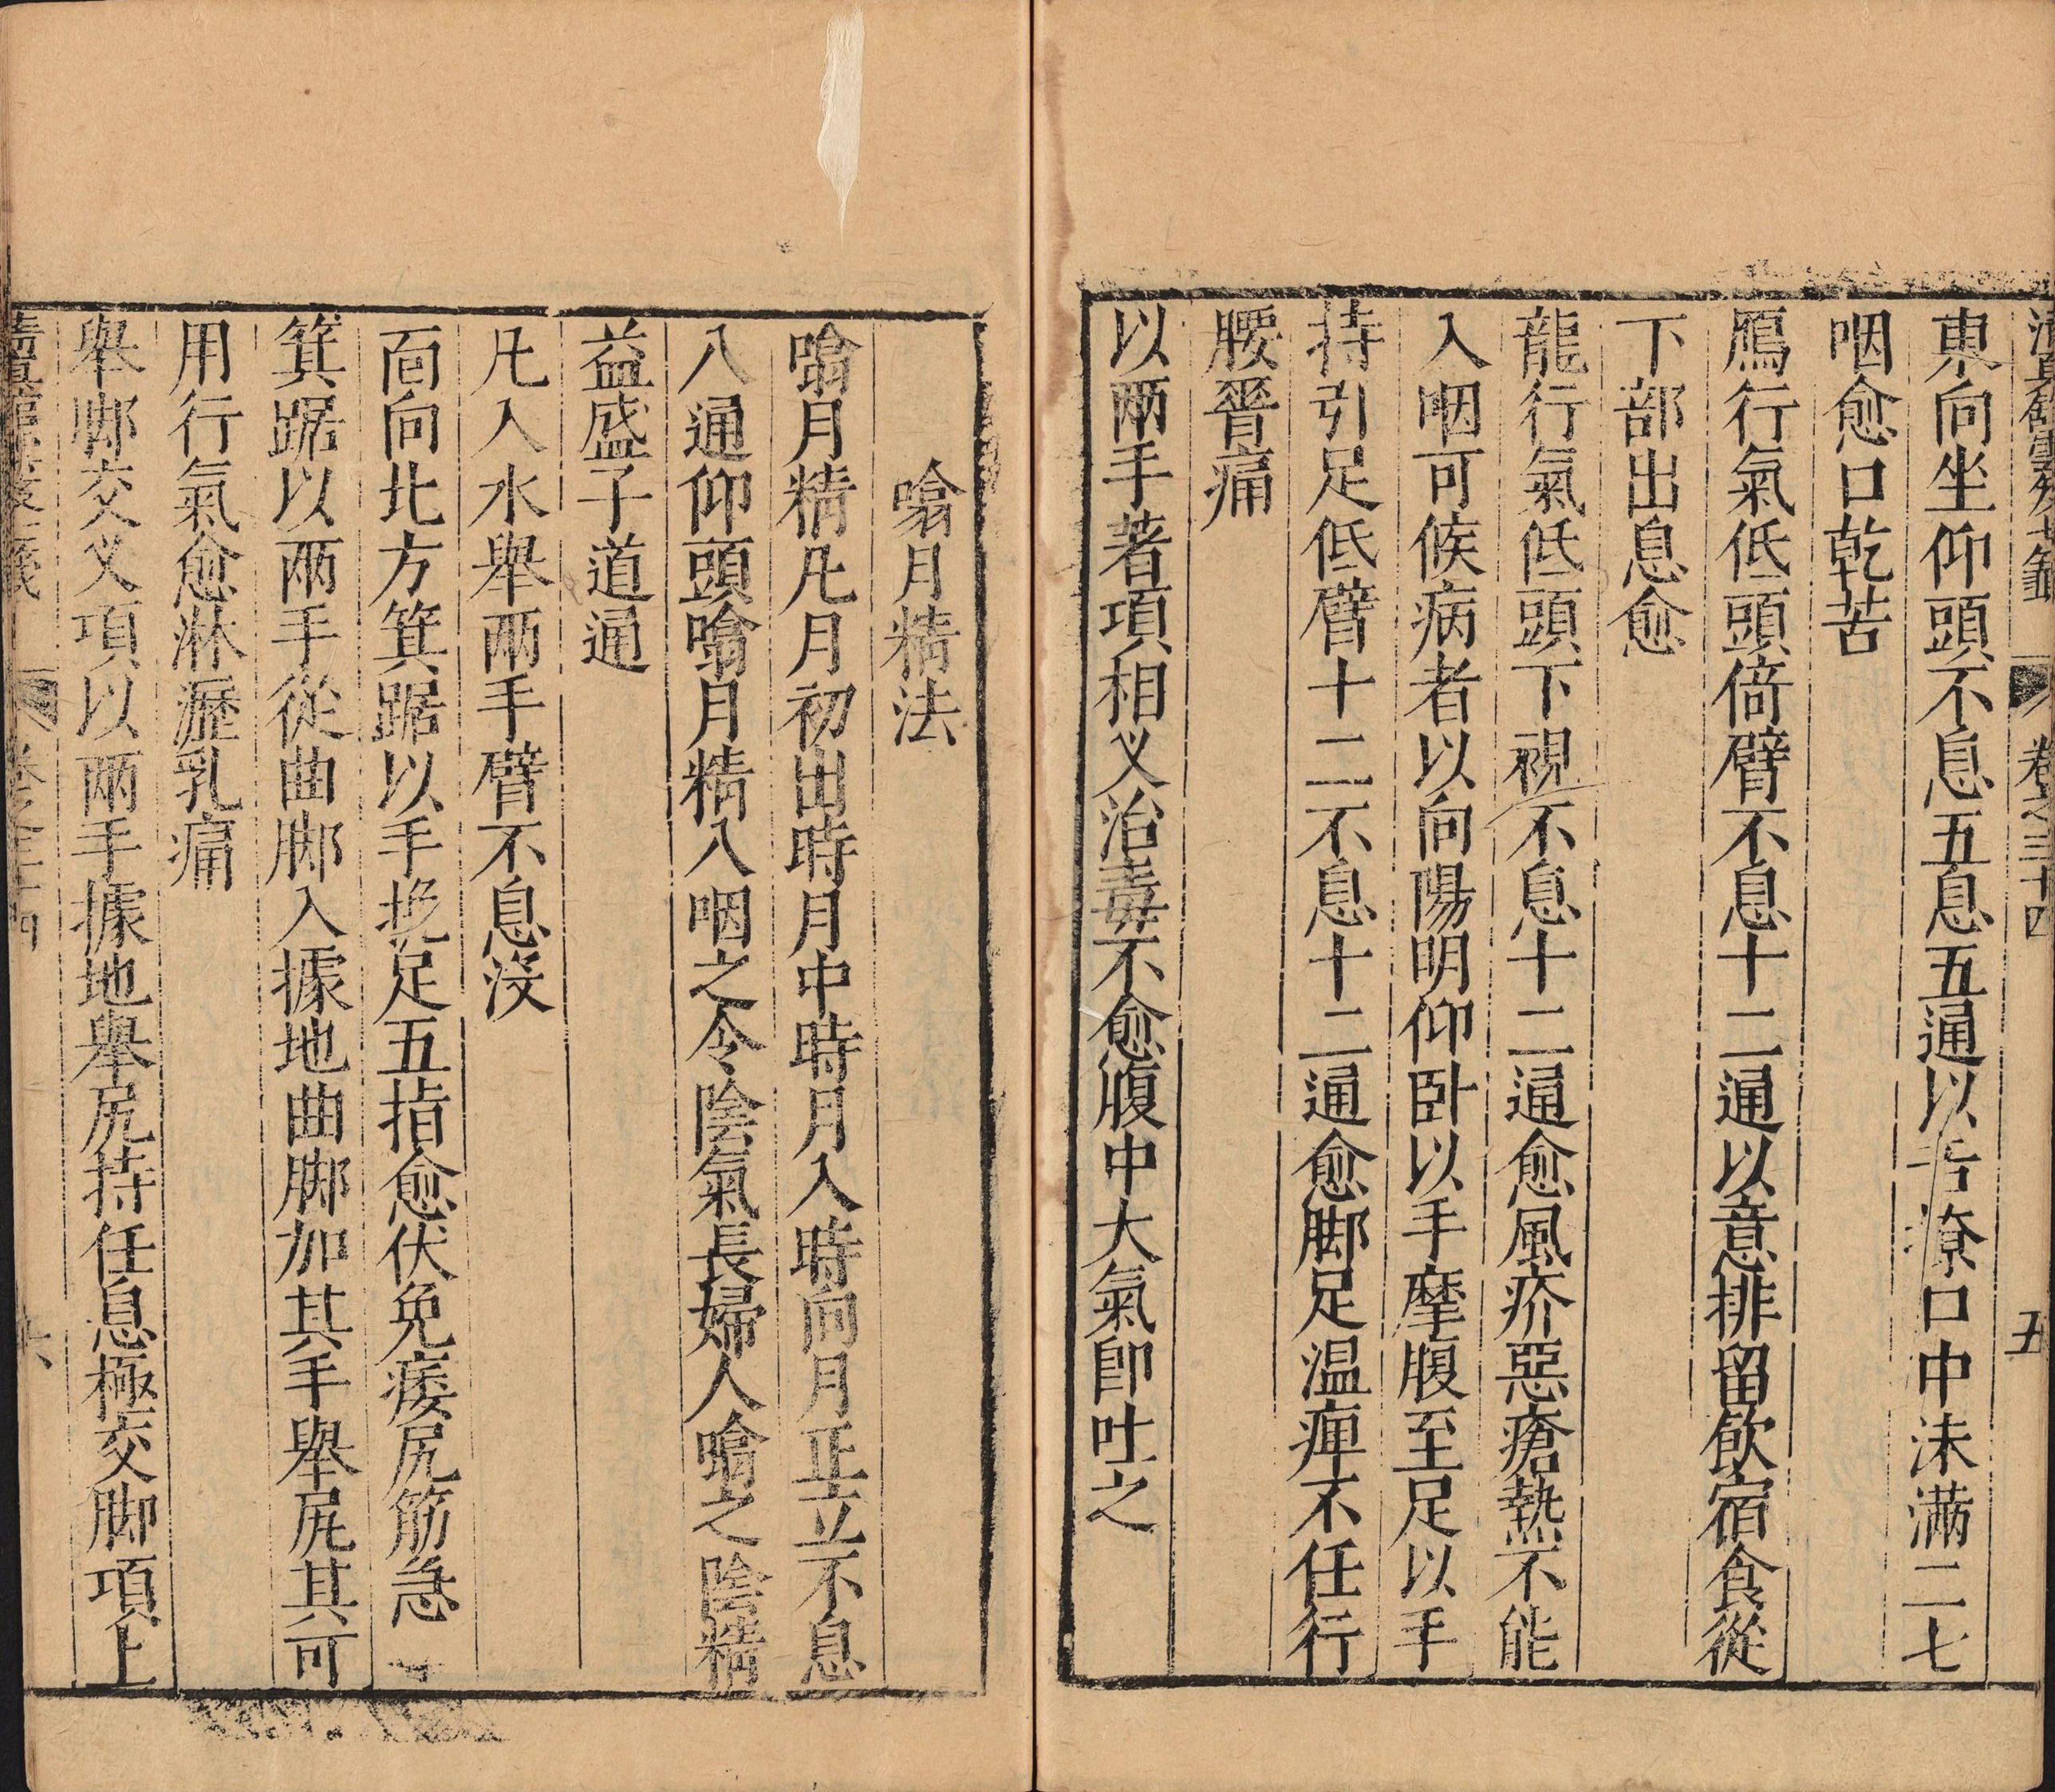 清真館雲笈七籤 卷之三十四 五
東向坐仰頭不息五息五通以舌撩口中沫滿二七
咽愈口乾苦
鴈行氣低頭倚臂不息十二通以意排留飲宿食從
下部出息愈
龍行氣低頭下視不息十二通愈風疥惡瘡熱不能
入咽可候病者以向陽明仰卧以手摩腹至足以手
持引足低臂十二不息十二通愈脚足温痺不任行
腰脊痛
以兩手著項相叉治毒不愈腹中大氣卽吐之
噏月精法
噏月精凡月初出時月中時月入時向月正立不息
八通仰頭噏月精八咽之令陰氣長婦人噏之陰精
益盛子道通
凡入水舉兩手臂不息没
面向北方箕踞以手挽足五指愈伏免痿尻筋急
箕踞以兩手從曲脚入據地曲脚加其手舉尻其可
用行氣愈淋瀝乳痛
舉脚交叉項以兩手據地舉尻持任息極交脚項上
清真館雲笈七籤 卷之三十四 六